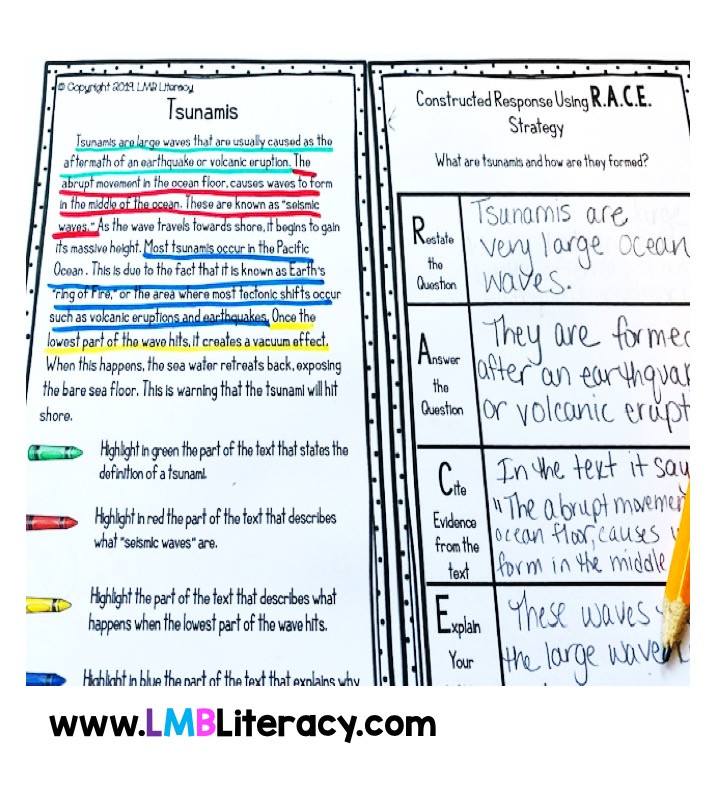 © Copyright 2019, LMB Literacy
Tsunamis
Tsunamis are large waves that are usually caused as the
aftermath of an earthquake or volcanic eruption. The
abrupt movement in the ocean floor, causes waves to form
in the middle of the ocean. These are known as "seismic
waves." As the wave travels towards shore, it begins to gain
its massive height. Most tsunamis occur in the Pacific
Ocean. This is due to the fact that it is known as Earth's
"ring of Fire," or the area where most tectonic shifts occur
such as volcanic eruptions and earthquakes. Once the
lowest part of the wave hits, it creates a vacuum effect.
When this happens, the sea water retreats back, exposing
the bare sea floor. This is warning that the tsunami will hit
shore.
Highlight in green the part of the text that states the
definition of a tsunami.
Highlight in red the part of the text that describes
what "seismic waves" are.
Highlight the part of the text that describes what
happens when the lowest part of the wave hits.
Highlight in blue the part of the text that explains why
Constructed Response Using R.A.C.E.
Strategy
What are tsunamis and how are they formed?
Restate
the
Question
Tsunamis are
very large ocean
waves.
Answer
the
Question
They are formed
after an earthquak
or volcanic erupt
Cite
Evidence
from the
text
In the text it say
"The abrupt movemen
ocean floor, causes w
form in the middle
Explain
Your
These waves
the large wave
www.LMBLiteracy.com